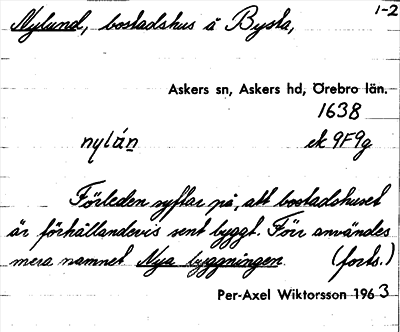 1-2
Nylund, bostadshus å Bysta,
Askers sn, Askers hd, Örebro län.
1638
nylán ek 9F9g
Förleden syftar på, att bostadshuset
är förhållandevis sent byggt. Förr användes
mera namnet Nya byggningen. (forts.)
Per-Axel Wiktorsson 1963